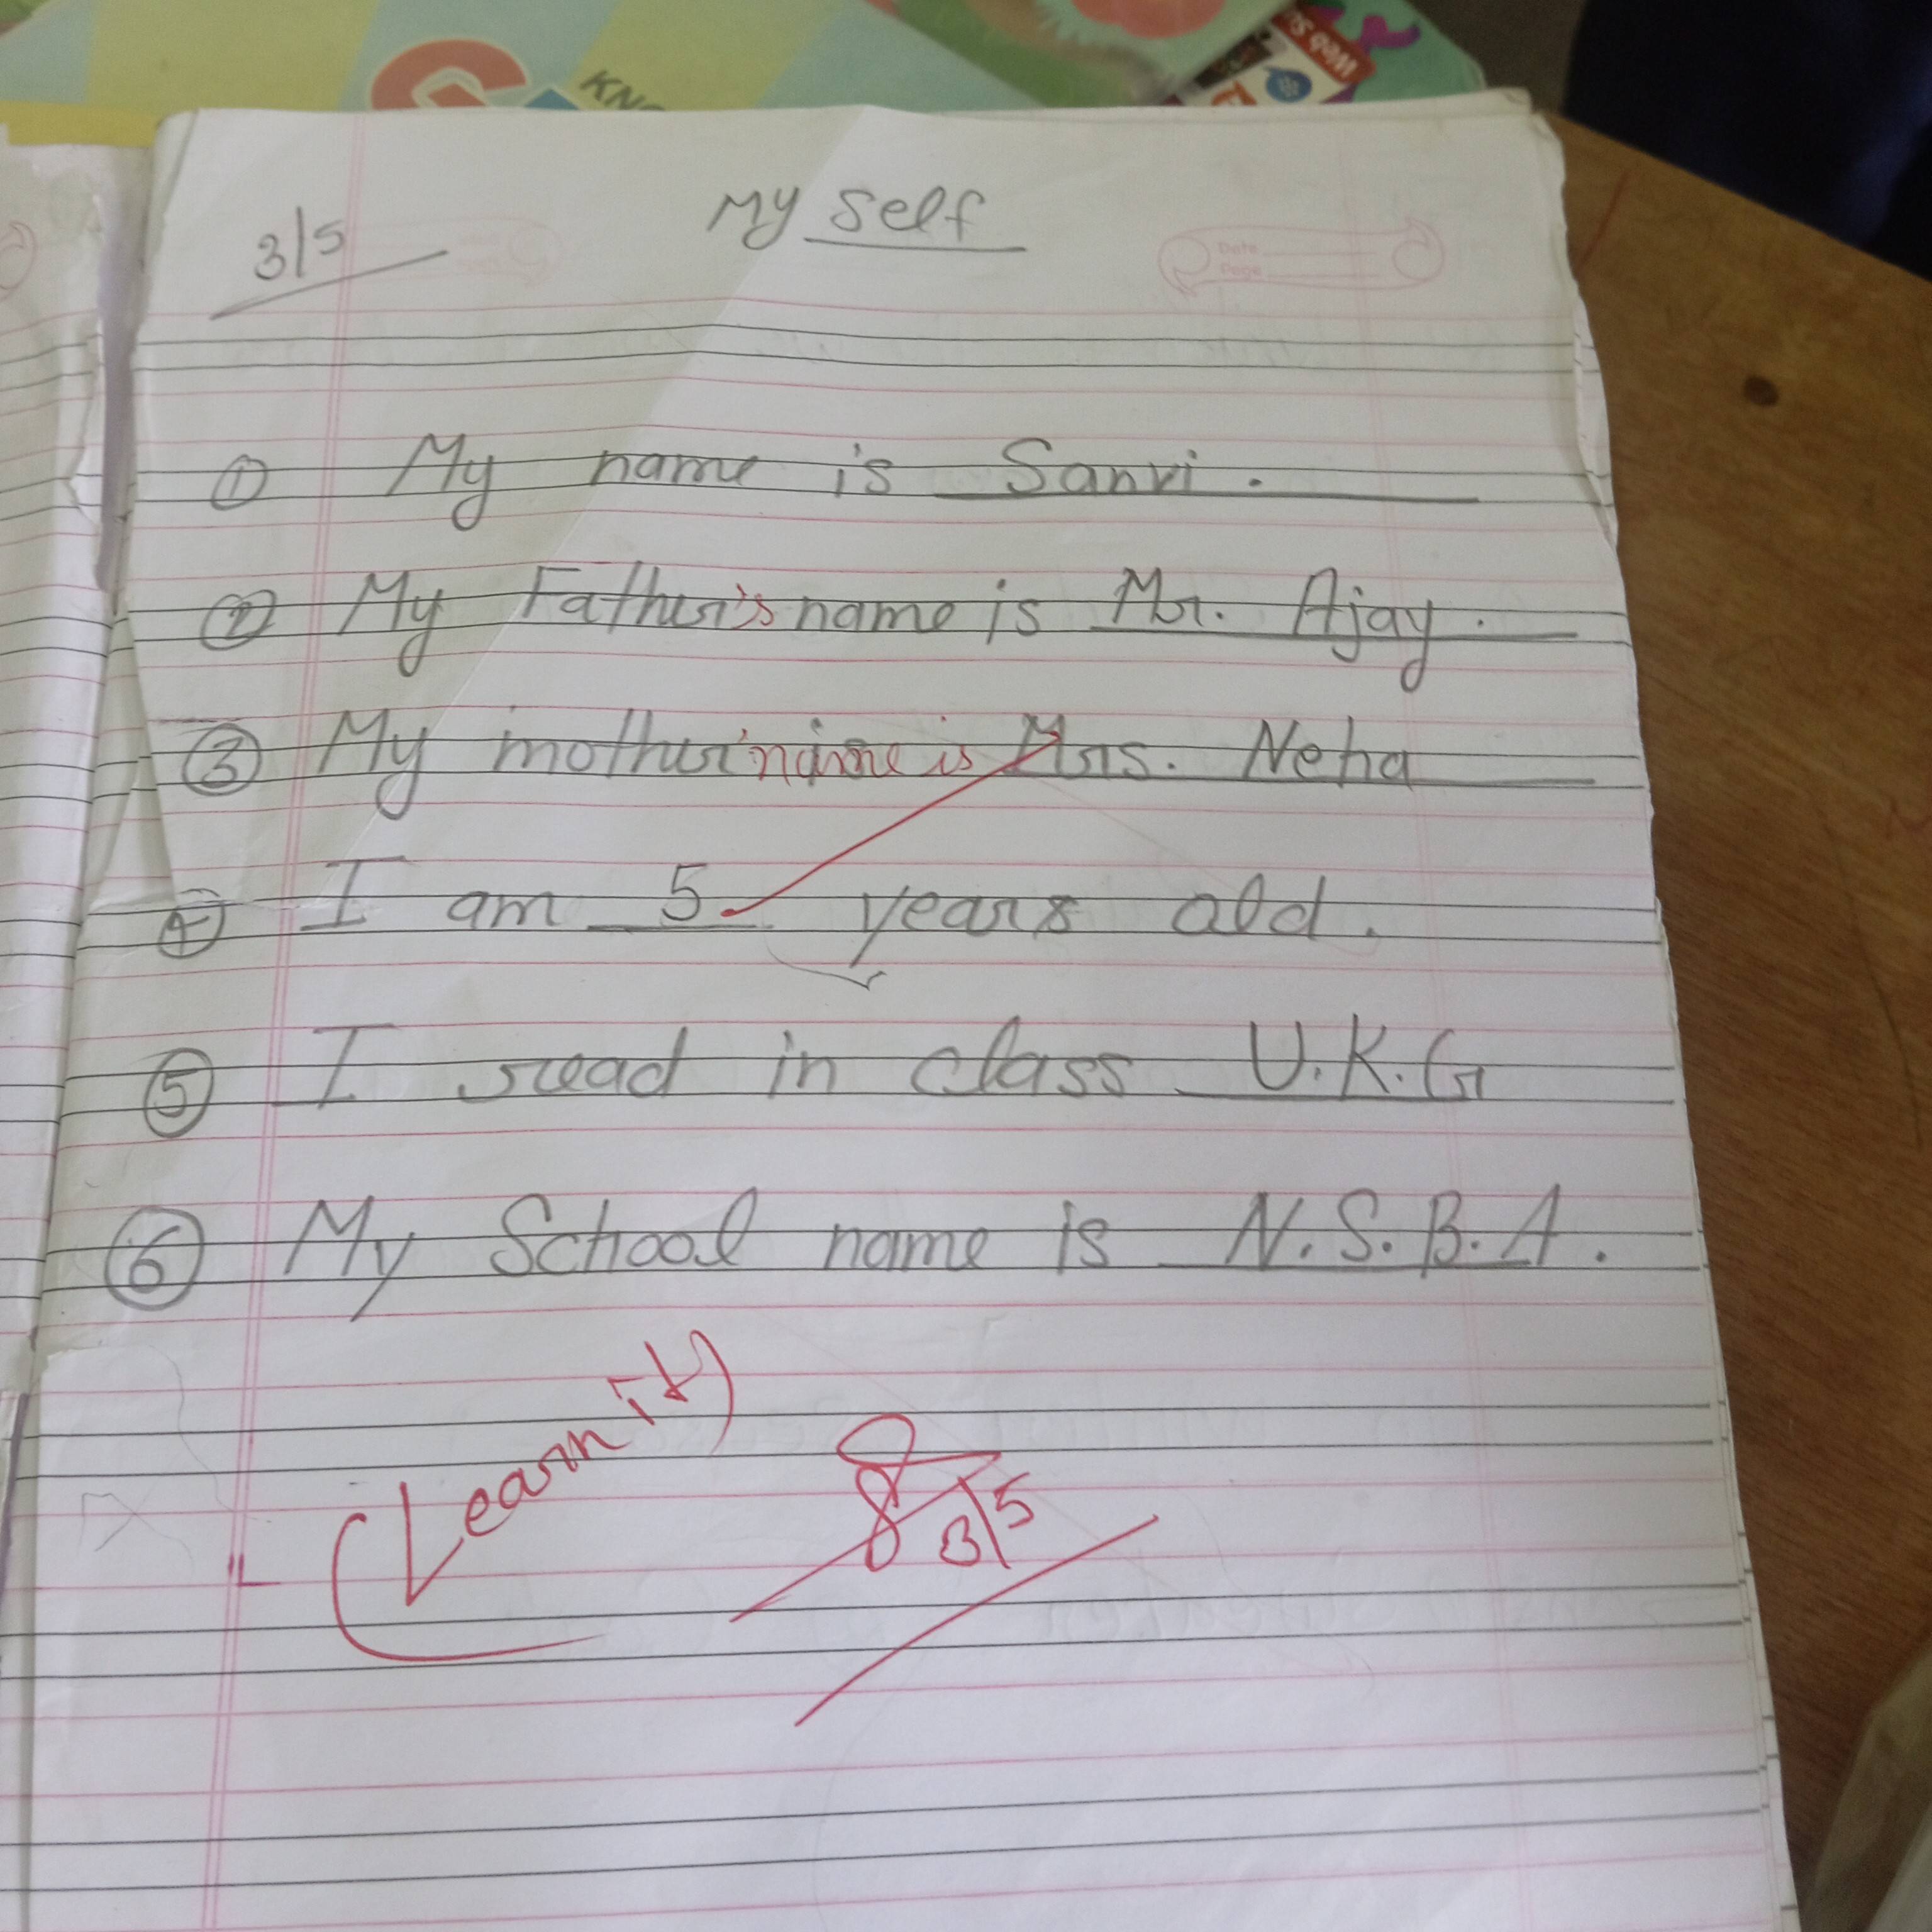 KNO
Web Su
My self
3/5
Date
Page
① My name is Sanvi.
② My Father's name is Mr. Ajay.
③ My mother'name is Mrs. Neha
④ I am 5 years old.
⑤ I read in class U.K.G
⑥ My School name is N.S.B.A.
(Learn it)
3/5